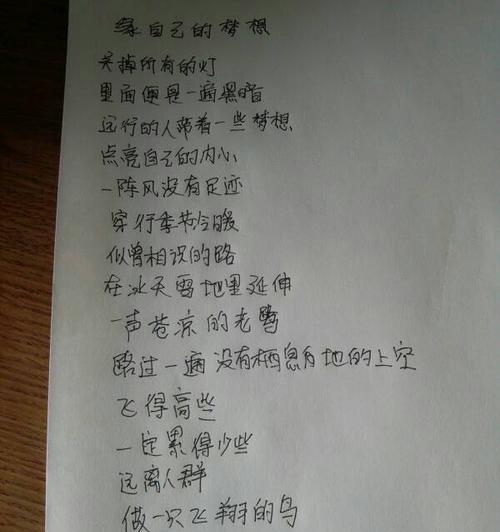 缘自己的梦想
关掉所有的灯
里面便是一遍黑暗
远行的人带着一些梦想
点亮自己的内心
一阵风没有足迹
穿行季节冷暖
似曾相识的路
在冰天雪地里延伸
一声苍凉的老鸹
路过一遍没有栖息有地的上空
飞得高些
一定累得少些
远离人群
做一只飞翔的鸟